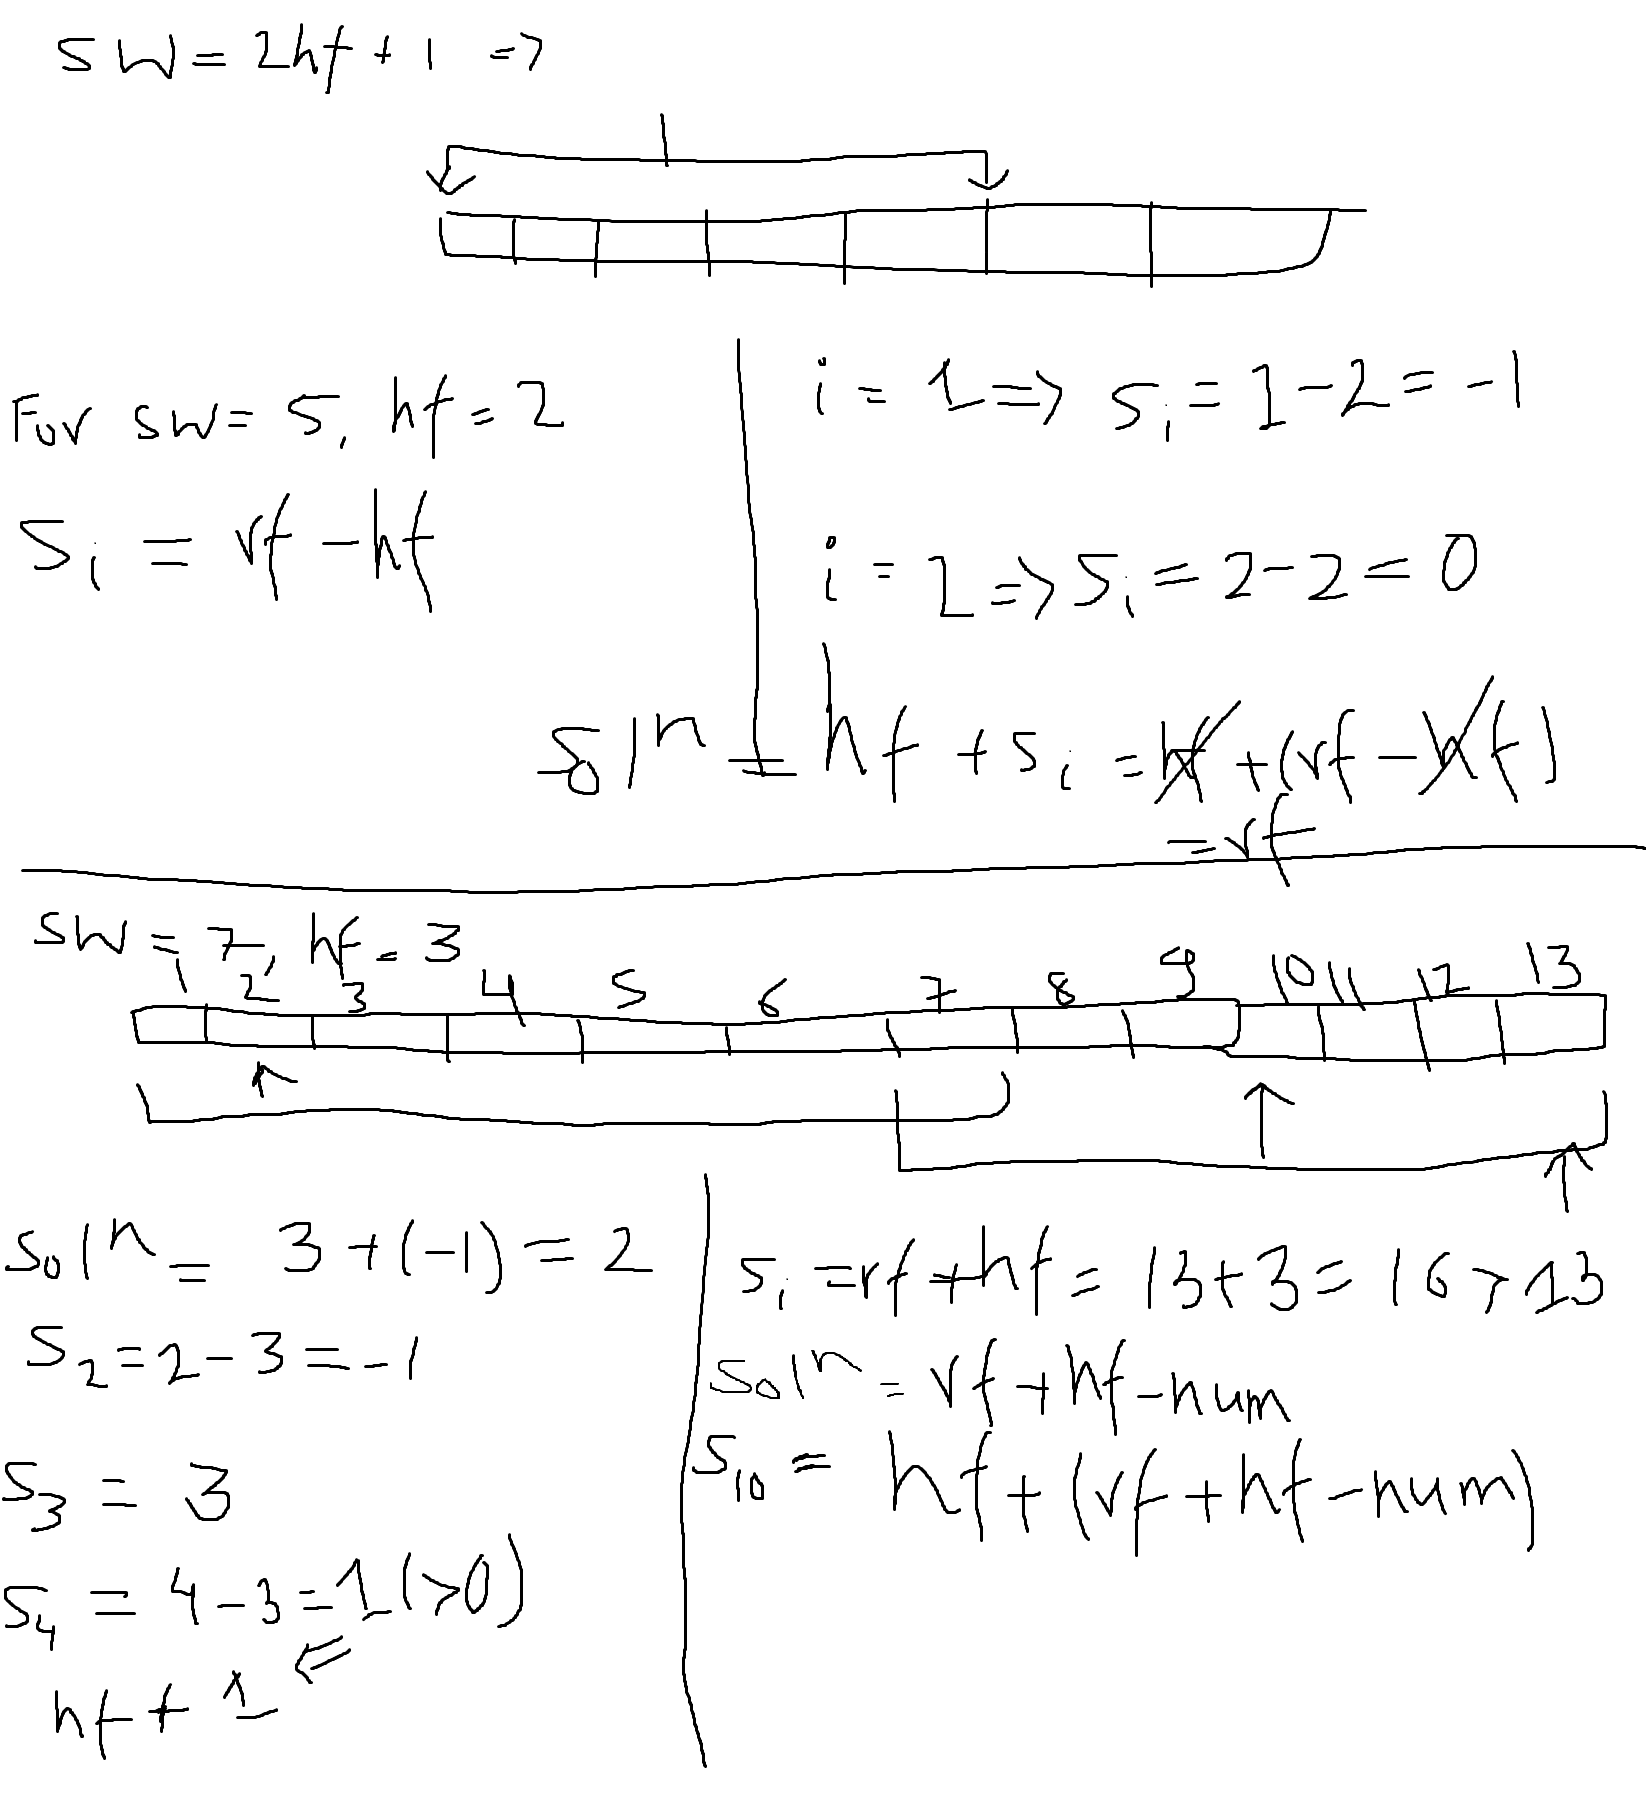 SW = 2hf + 1 =>
For SW = 5, hf = 2
Si = rf - hf
i = 1 => Si = 1 - 2 = -1
i = 2 => Si = 2 - 2 = 0
Solⁿ = hf + Si = hf + (rf - hf)
= rf
SW = 7, hf = 3
1 2 3 4 5 6 7 8 9 10 11 12 13
Solⁿ = 3 + (-1) = 2
S2 = 2 - 3 = -1
S3 = 3
S4 = 4 - 3 = 1 (>0)
hf + 1 <=
Si = rf + hf = 13 + 3 = 16 > 13
Solⁿ = rf + hf - num
S10 = hf + (rf + hf - num)